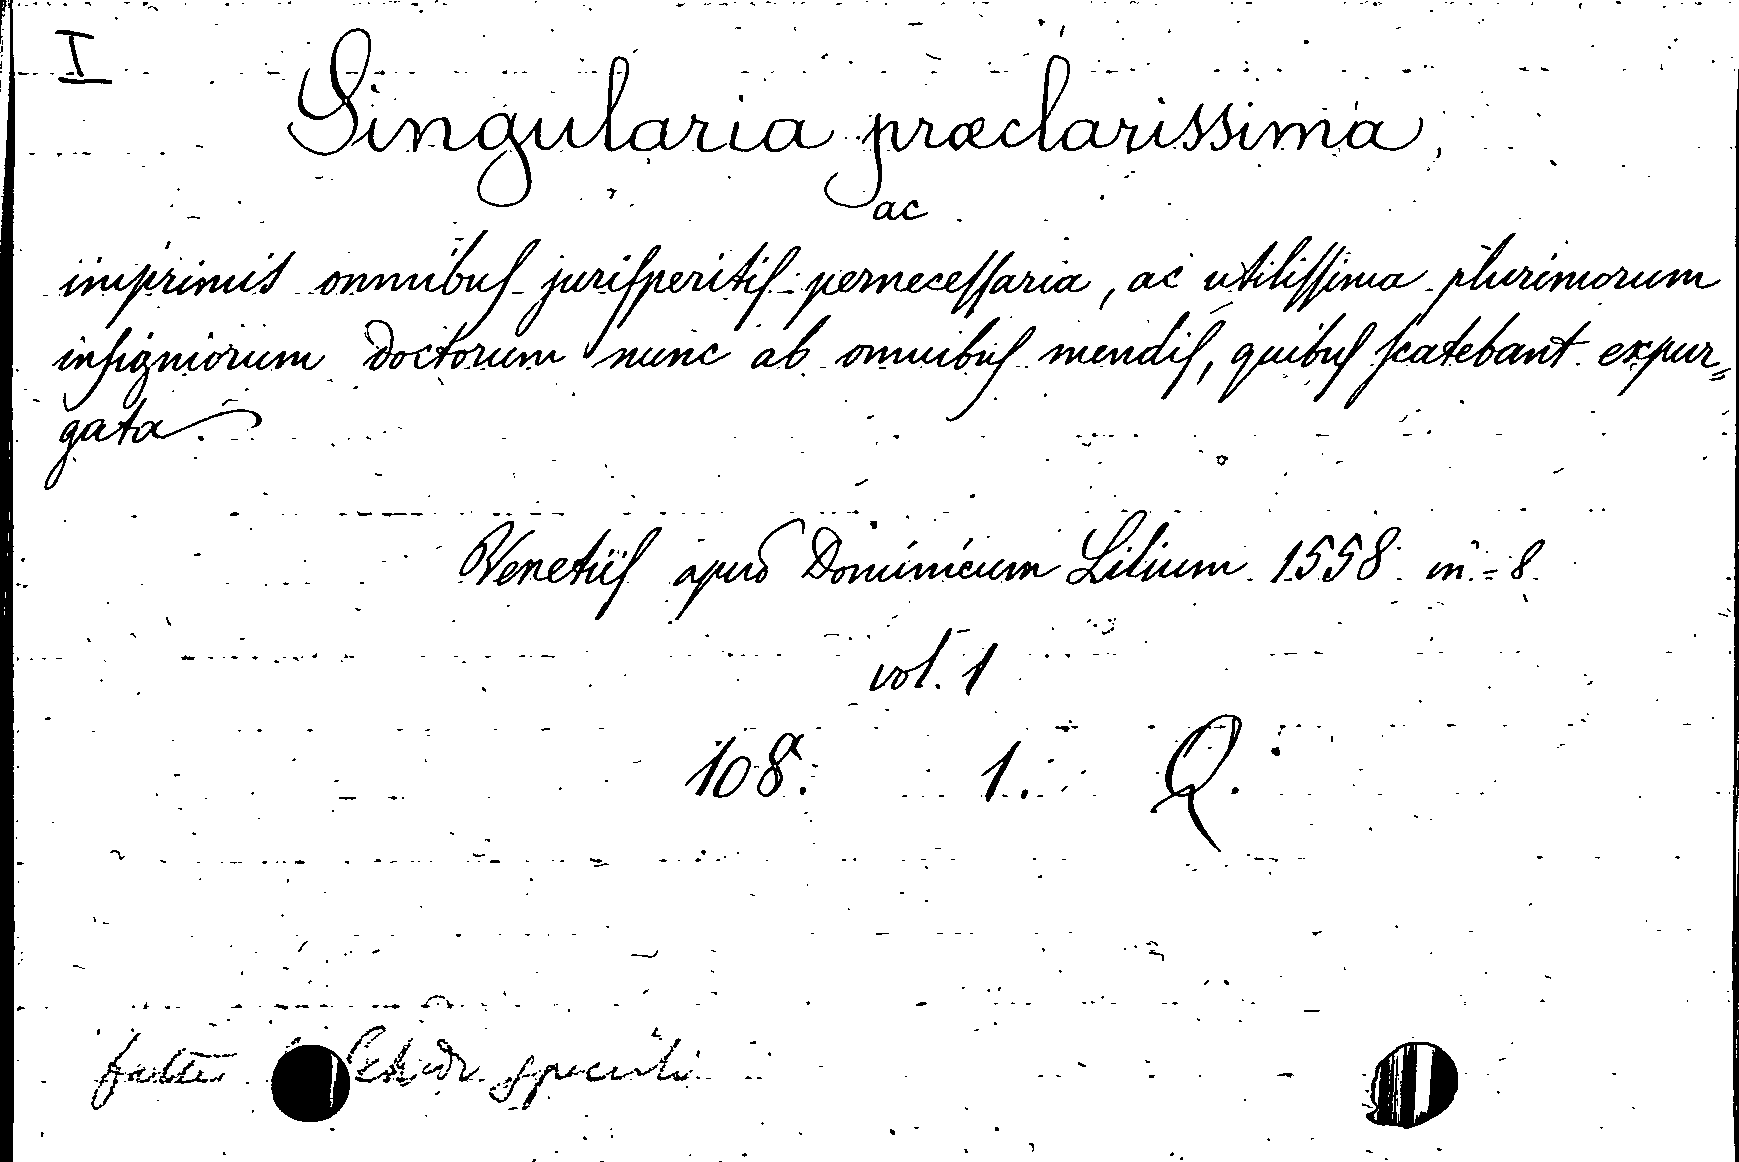 I
Singularia præclarissima,
ac
imprimis omnibuſ juriſperitiſ perneceſſaria, ac utiliſſima plurimorum
inſigniorum doctorum nunc ab omnibuſ mendiſ, quibuſ ſcatebant expur=
gata.
Venetiiſ apud Dominicum Lilium 1558 in-8.
vol. 1
108. 1. Q.